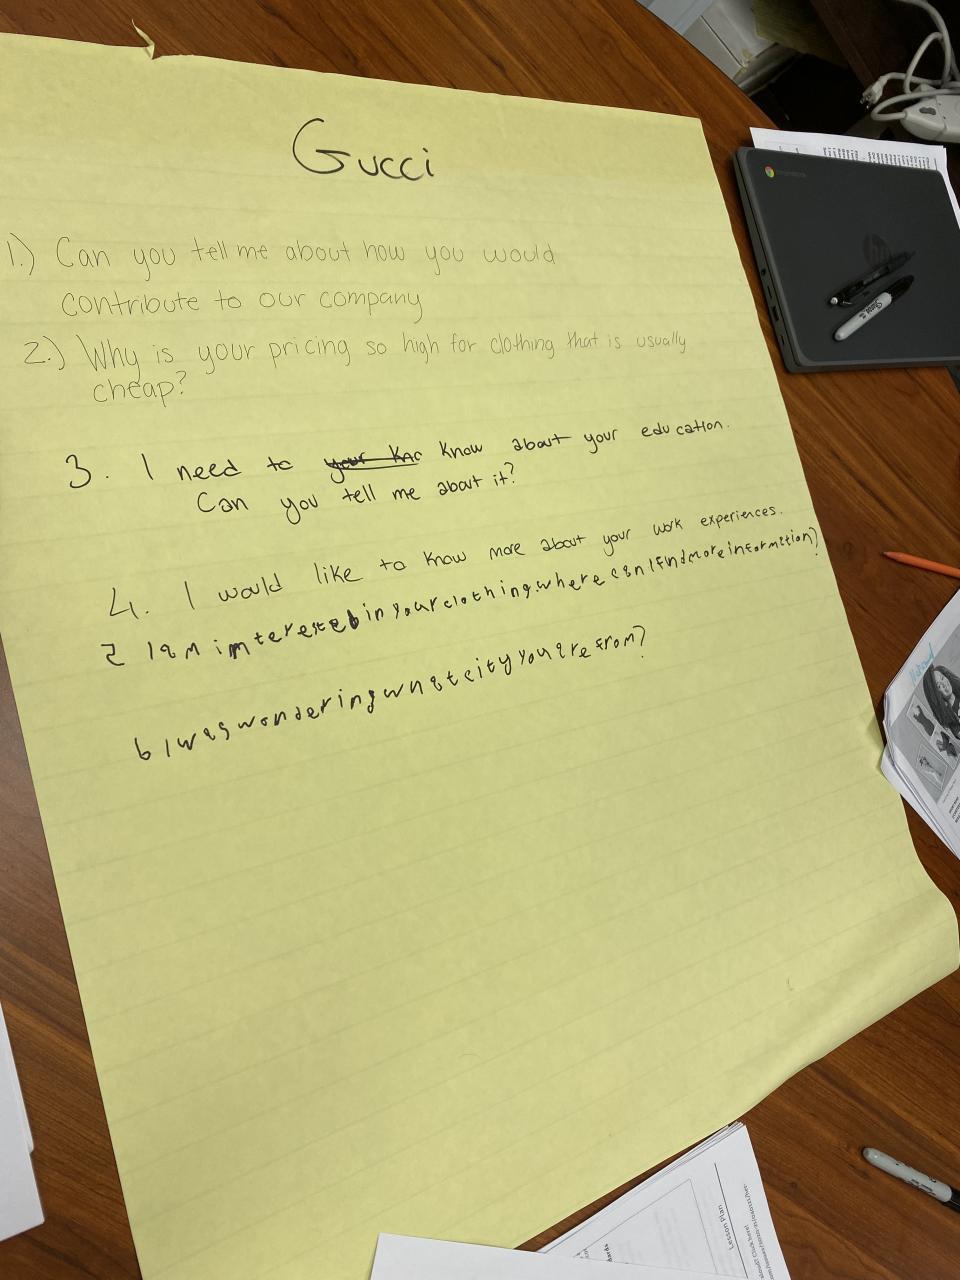 Gucci
1.) Can you tell me about how you would
contribute to our company
2.) Why is your pricing so high for clothing that is usually
cheap?
3. I need to know about your education.
Can you tell me about it?
4. I would like to know more about your work experiences.
5 I am imterested in your clothing. where can I find more information?
6 I was wondering what city you are from?
chromebook
hp
Sharpie
Lesson Plan